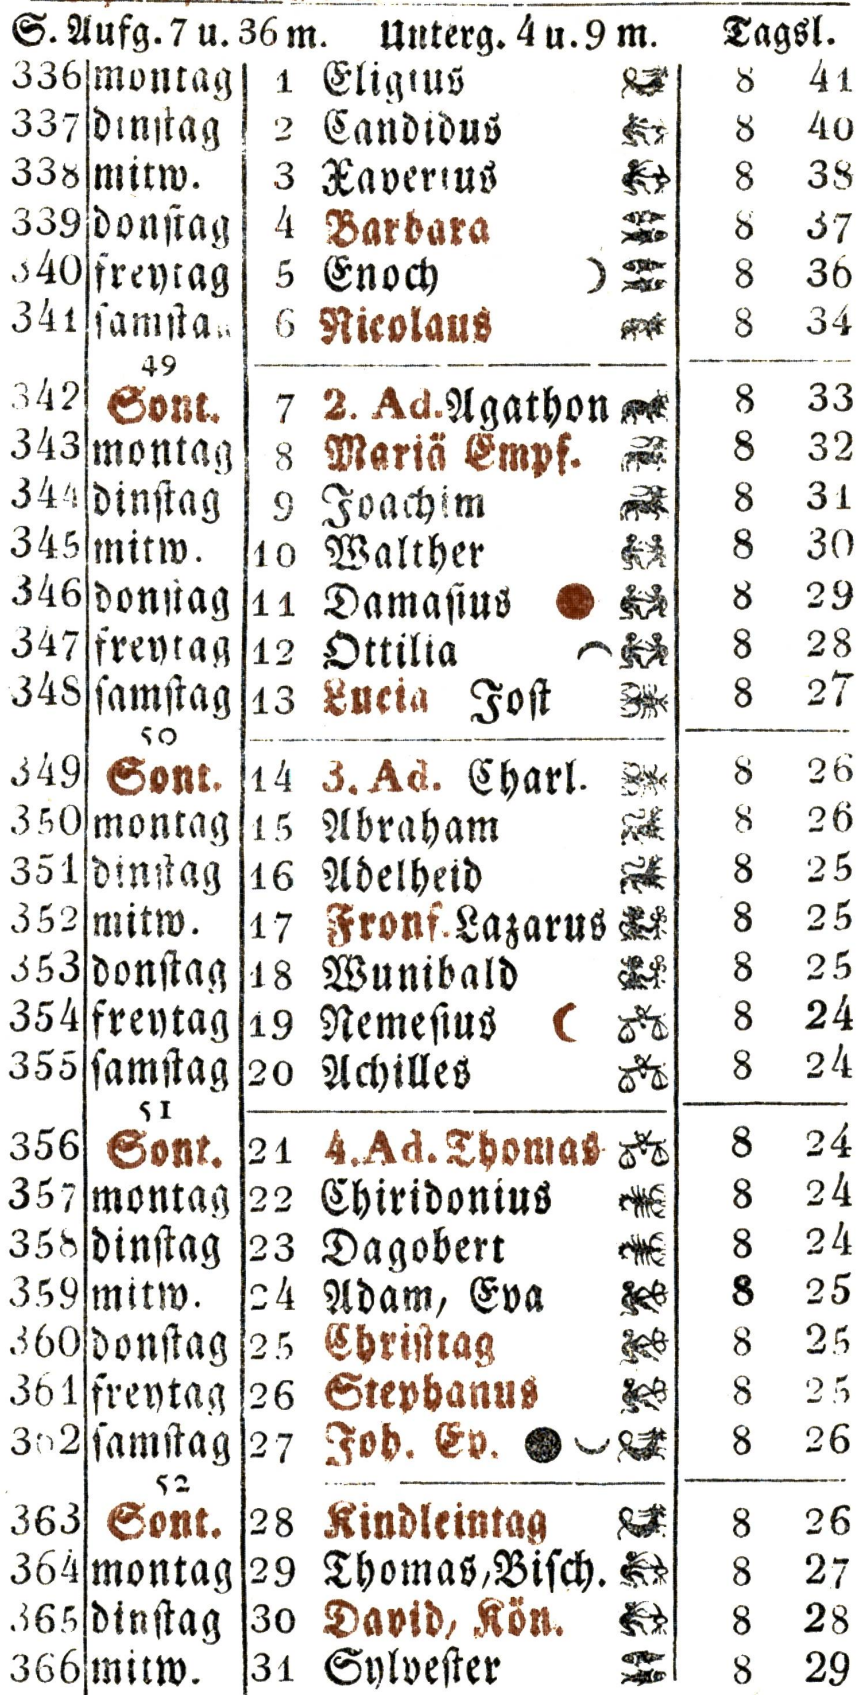 S. Aufg. 7 u. 36 m. Unterg. 4 u. 9 m. Tagsl.
336 montag 1 Eligius 8 41
337 dinſtag 2 Candidus 8 40
338 mitw. 3 Xaverius 8 38
339 donſtag 4 Barbara 8 37
340 freytag 5 Enoch 8 36
341 ſamſtag 6 Nicolaus 8 34
49
342 Sont. 7 2. Ad. Agathon 8 33
343 montag 8 Mariä Empf. 8 32
344 dinſtag 9 Joachim 8 31
345 mitw. 10 Walther 8 30
346 donſtag 11 Damaſius 8 29
347 freytag 12 Ottilia 8 28
348 ſamſtag 13 Lucia Joſt 8 27
50
349 Sont. 14 3. Ad. Charl. 8 26
350 montag 15 Abraham 8 26
351 dinſtag 16 Adelheid 8 25
352 mitw. 17 Fronf. Lazarus 8 25
353 donſtag 18 Wunibald 8 25
354 freytag 19 Nemeſius 8 24
355 ſamſtag 20 Achilles 8 24
51
356 Sont. 21 4. Ad. Thomas 8 24
357 montag 22 Chiridonius 8 24
358 dinſtag 23 Dagobert 8 24
359 mitw. 24 Adam, Eva 8 25
360 donſtag 25 Chriſttag 8 25
361 freytag 26 Stephanus 8 25
362 ſamſtag 27 Joh. Ev. 8 26
52
363 Sont. 28 Kindleintag 8 26
364 montag 29 Thomas, Biſch. 8 27
365 dinſtag 30 David, Kön. 8 28
366 mitw. 31 Sylveſter 8 29